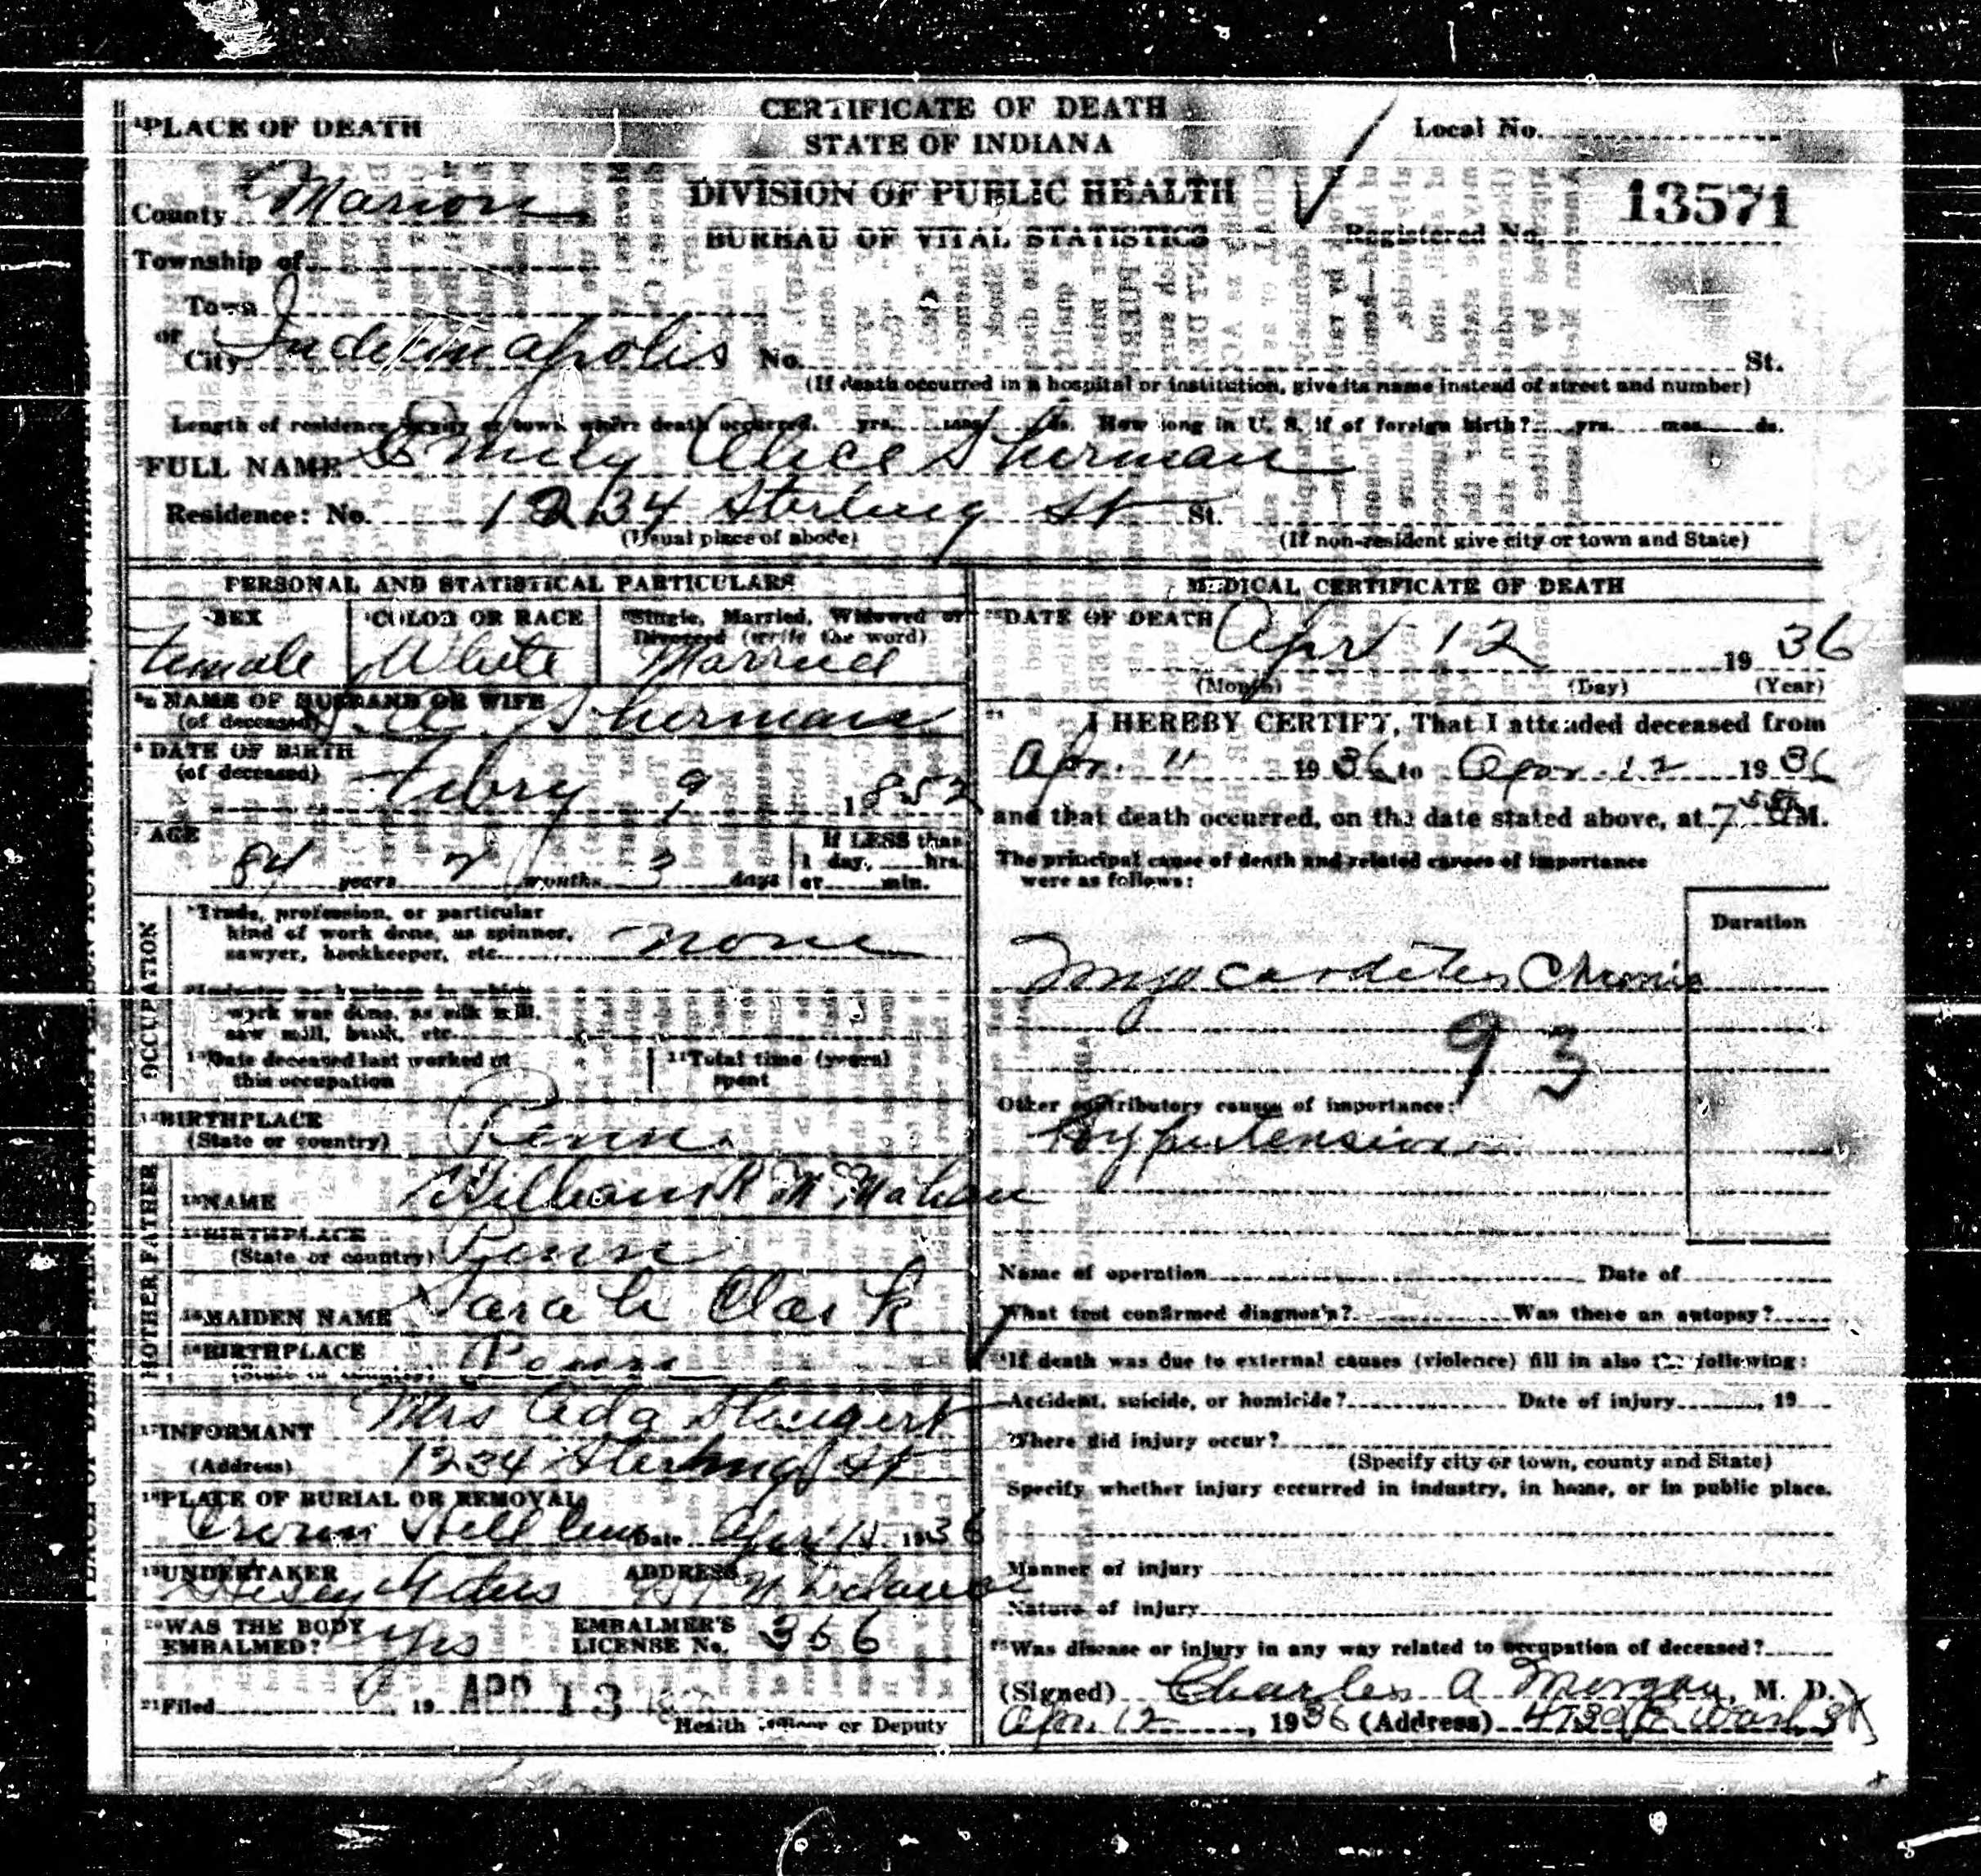 CERTIFICATE OF DEATH
STATE OF INDIANA
DIVISION OF PUBLIC HEALTH
BUREAU OF VITAL STATISTICS
Local No.
Registered No. 13571
PLACE OF DEATH
County Marion
Township of
Town
or
City Indianapolis No. St.
(If death occurred in a hospital or institution, give its name instead of street and number)
Length of residence in city or town where death occurred. yrs. mos. ds. How long in U. S. if of foreign birth? yrs. mos. ds.
FULL NAME Emily Alice Sherman
Residence: No. 1234 Sterling St St.
(Usual place of abode) (If non-resident give city or town and State)
PERSONAL AND STATISTICAL PARTICULARS
SEX COLOR OR RACE Single, Married, Widowed or
Divorced (write the word)
Female White Married
NAME OF HUSBAND OR WIFE
(of deceased) Sherman
DATE OF BIRTH
(of deceased) Febry 9 1852
AGE If LESS than
1 day, hrs.
84 years 2 months 3 days or min.
OCCUPATION
Trade, profession, or particular
kind of work done, as spinner,
sawyer, bookkeeper, etc. none
Industry or business in which
work was done, as silk mill,
saw mill, bank, etc.
10 Date deceased last worked at
this occupation
11 Total time (years)
spent
12 BIRTHPLACE
(State or country) Penn.
FATHER
13 NAME William R McMahan
14 BIRTHPLACE
(State or country) Penn
MOTHER
15 MAIDEN NAME Sarah Clark
16 BIRTHPLACE Penn
17 INFORMANT Mrs Ada
(Address) 1234 Sterling St
18 PLACE OF BURIAL OR REMOVAL
Crown Hill Cem Date Apr 15 1936
19 UNDERTAKER ADDRESS
20 WAS THE BODY
EMBALMED? yes
EMBALMER'S
LICENSE No. 356
21 Filed 19 APR 13
Health Officer or Deputy
MEDICAL CERTIFICATE OF DEATH
DATE OF DEATH Apr 12 19 36
(Month) (Day) (Year)
I HEREBY CERTIFY, That I attended deceased from
Apr. 11 1936 to Apr. 12 1936
and that death occurred, on the date stated above, at 7 55 M.
The principal cause of death and related causes of importance
were as follows:
Duration
Myocarditis Chronic
93
Other contributory causes of importance:
Hypertension
Name of operation Date of
What test confirmed diagnosis? Was there an autopsy?
If death was due to external causes (violence) fill in also the following:
Accident, suicide, or homicide? Date of injury , 19
Where did injury occur?
(Specify city or town, county and State)
Specify whether injury occurred in industry, in home, or in public place.
Manner of injury
Nature of injury
Was disease or injury in any way related to occupation of deceased?
(Signed) Charles A Morgan, M. D.
Apr. 12, 1936 (Address) Wash St